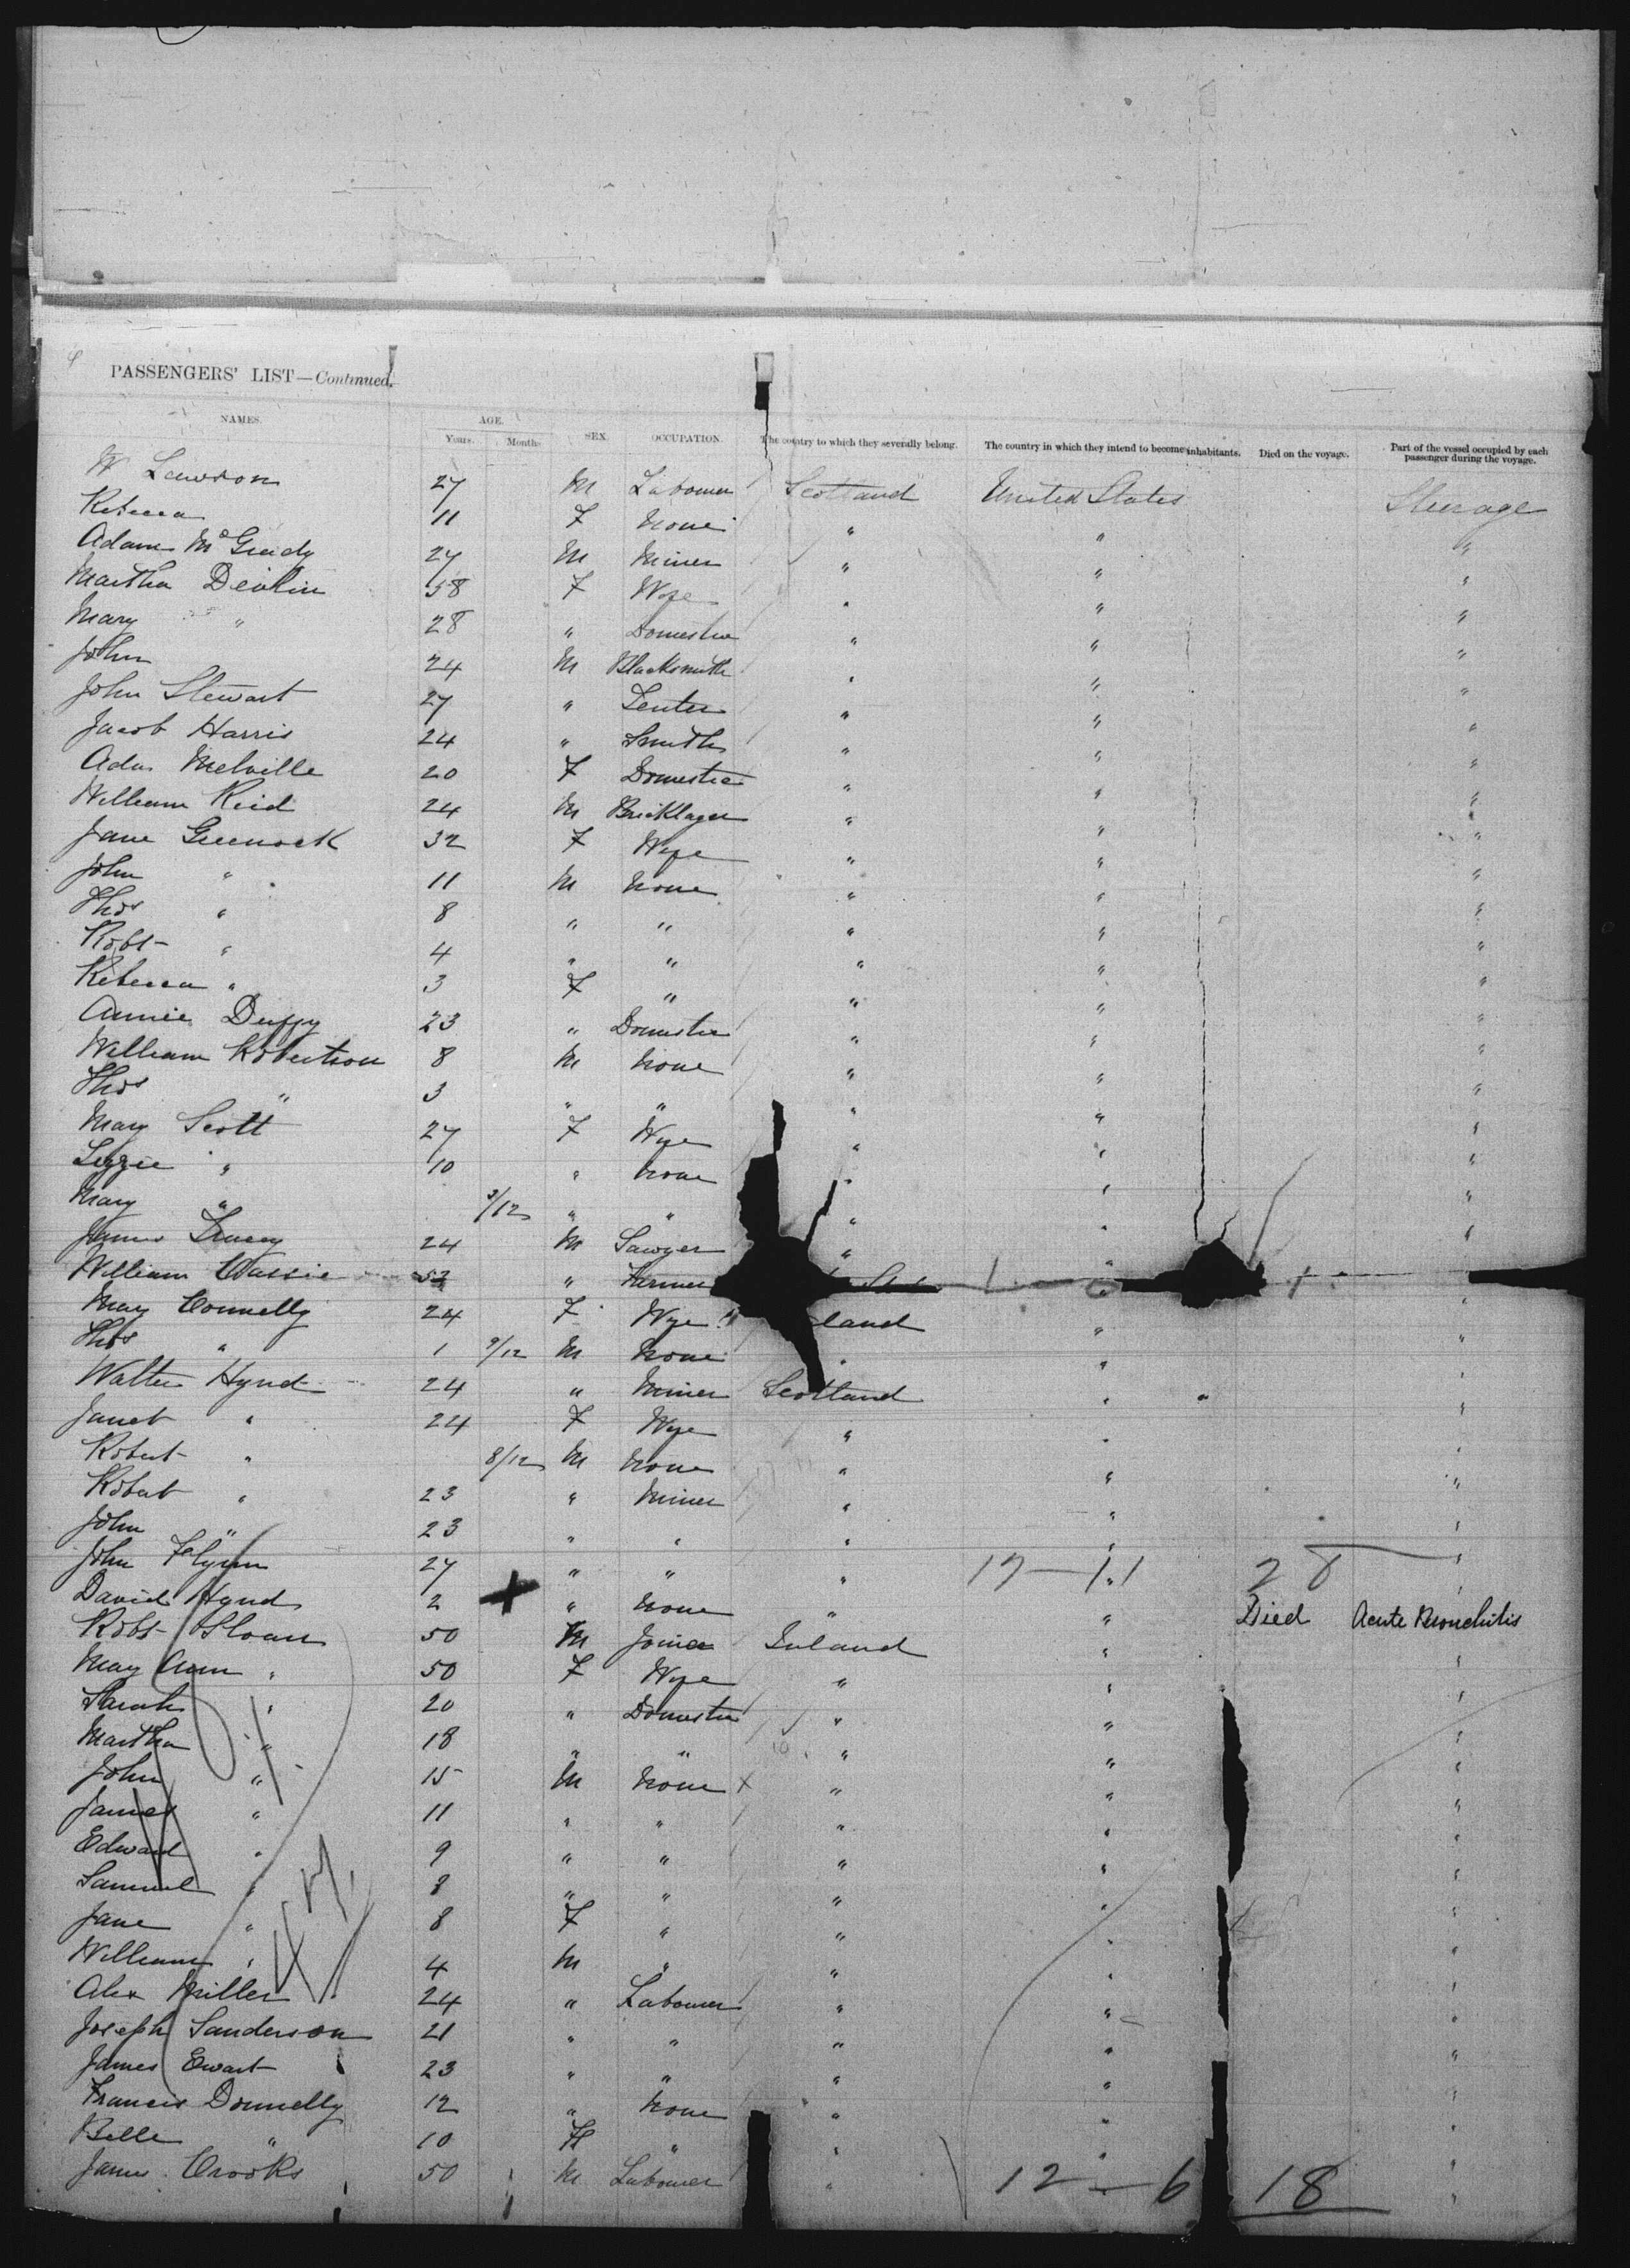 PASSENGERS' LIST—Continued.
NAMES. AGE. SEX. OCCUPATION. The country to which they severally belong. The country in which they intend to become inhabitants. Died on the voyage. Part of the vessel occupied by each passenger during the voyage.
Years. Months.
W Lawson 27 M Labourer Scotland United States Steerage
Rebecca 11 F None " " "
Adam McGrady 27 M Miner " " "
Martha Devlin 58 F Wife " " "
Mary " 28 " Domestic " " "
John 24 M Blacksmith " " "
John Stewart 27 " " " "
Jacob Harris 24 " Smith " " "
Ada Melville 20 F Domestic " " "
William Reid 24 M Bricklayer " " "
Jane Greenock 32 F Wife " " "
John " 11 M None " " "
Thos " 8 " " " " "
Robt " 4 " " " " "
Rebecca " 3 F " " " "
Annie Duffy 23 " Domestic " " "
William Robertson 8 M None " " "
Thos " 3 " " " " "
Mary Scott 27 F Wife " " "
Lizzie " 10 " None " " "
Mary " /12 " " " " "
James 24 M Sawyer " " "
William 52 " Farmer
Mary Connelly 24 F Wife land " "
Thos " 1 9/12 M None " " "
Walter Hynd 24 " Miner Scotland " "
Janet " 24 F Wife " " "
Robert " 8/12 M None " " "
Robert " 23 " Miner " " "
John " 23 " " " " "
John Flynn 27 " " " 17—11 28 "
David Hynd 2 X " None " " Died Acute Bronchitis
Robt Sloan 50 M Joiner Ireland " "
Mary Ann " 50 F Wife " " "
Sarah " 20 " Domestic " " "
Martha " 18 " " " " "
John " 15 M None X " " "
James " 11 " " " " "
Edward " 9 " " " " "
Samuel " 8 " " " " "
Jane " 8 F " " " "
William " 4 M " " " "
Alex Miller 24 " Labourer " " "
Joseph Sanderson 21 " " " " "
James Ewart 23 " " " " "
Francis Donnelly 12 " None " " "
Belle " 10 F " " " "
James Crooks 50 M Labourer " 12—6 18 "